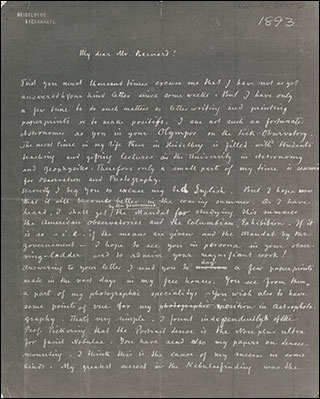 HEIDELBERG
STERNWARTE.
1893
My dear Mr. Barnard!
Did you must thousand times excuse me that I have not as yet
answered your kind letter since some weeks. But I have only
a few time to do such matters as letter writing and printing
paperprints or to make positifs. I am not such an fortunate
Astronomer as you in your Olympos on the Lick-Observatory.
The most time in my life there in Heidelberg is filled with students
teaching and gifting lectures on the University in astronomy
and geophysik. Therefore only a small part of my time is
for observation and Photography.
Secondly I beg you to excuse my bad English. But I hope now
that it will become better in the coming summer. As I have
heard, I shall get the Mandat for studying this summer
the American observatories and the Columbian Exhibition. If it
is so – i.e. if the means are given and the Mandat by the
government – I hope to see you in persona in your obser-
ving-ladder and to admire your magnificent work!
Answering to your letter I send you to day a few paperprints
made in the last days in my free houres. You see from them
a part of my photographic speciality. You wish also to have
some points of view for my position in astrophoto-
graphy. That's very simple. I found independently of the
Prof. Pickering that the Portrait lense is the Non plus ultra
for faint Nebulae. You have read also my papers on lense-
mounting. I think this is the cause of my success in some
kinds. My greatest success in the Nebulaefinding was the